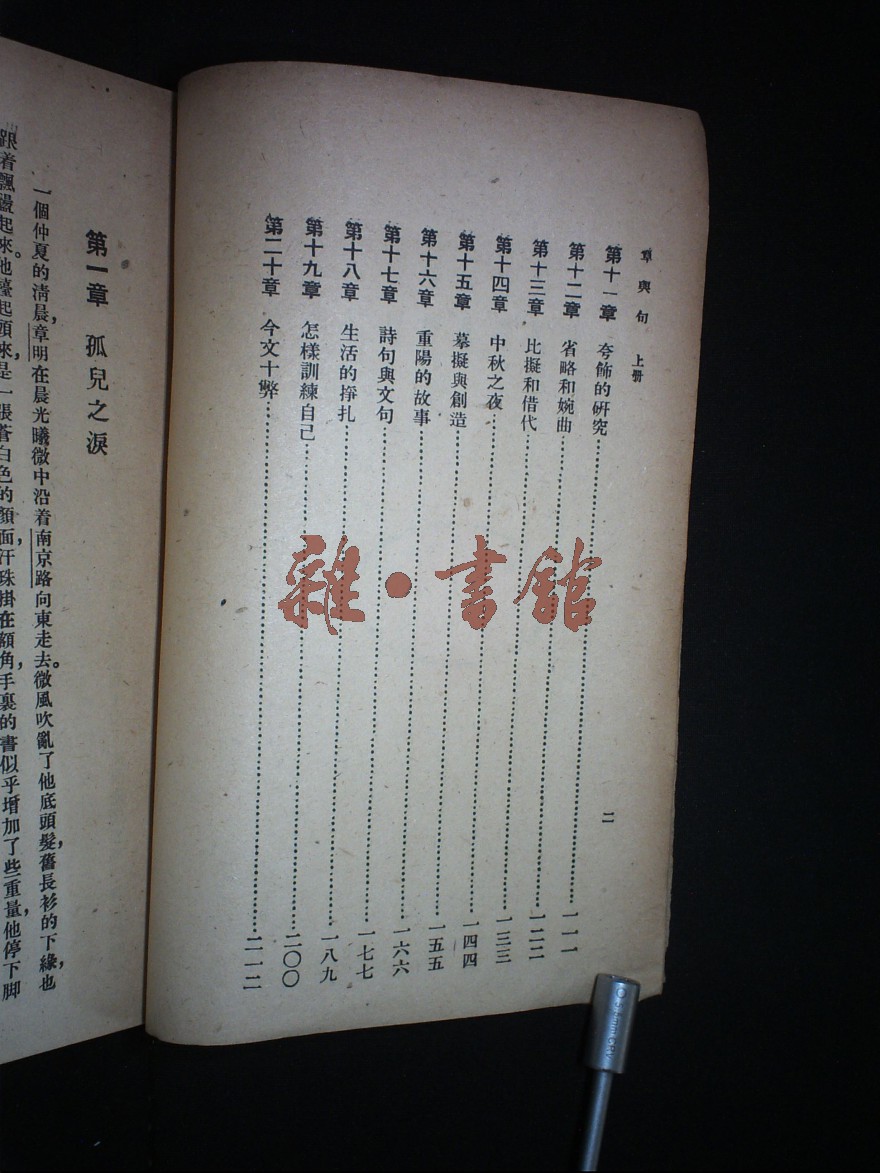 章與句 上册
二
第十一章 夸飾的研究……一一一
第十二章 省略和婉曲……一二二
第十三章 比擬和借代……一三三
第十四章 中秋之夜……一四四
第十五章 摹擬與創造……一五五
第十六章 重陽的故事……一六六
第十七章 詩句與文句……一七七
第十八章 生活的掙扎……一八九
第十九章 怎樣訓練自己……二〇〇
第二十章 今文十弊……二一二
第一章 孤兒之淚
一個仲夏的淸晨，章明在晨光曦微中沿着南京路向東走去。微風吹亂了他底頭髮，舊長衫的下緣，也
跟着飄盪起來。他擡起頭來，是一張蒼白色的顏面，汗珠掛在額角，手裏的書似乎增加了些重量，他停下脚
雜·書館